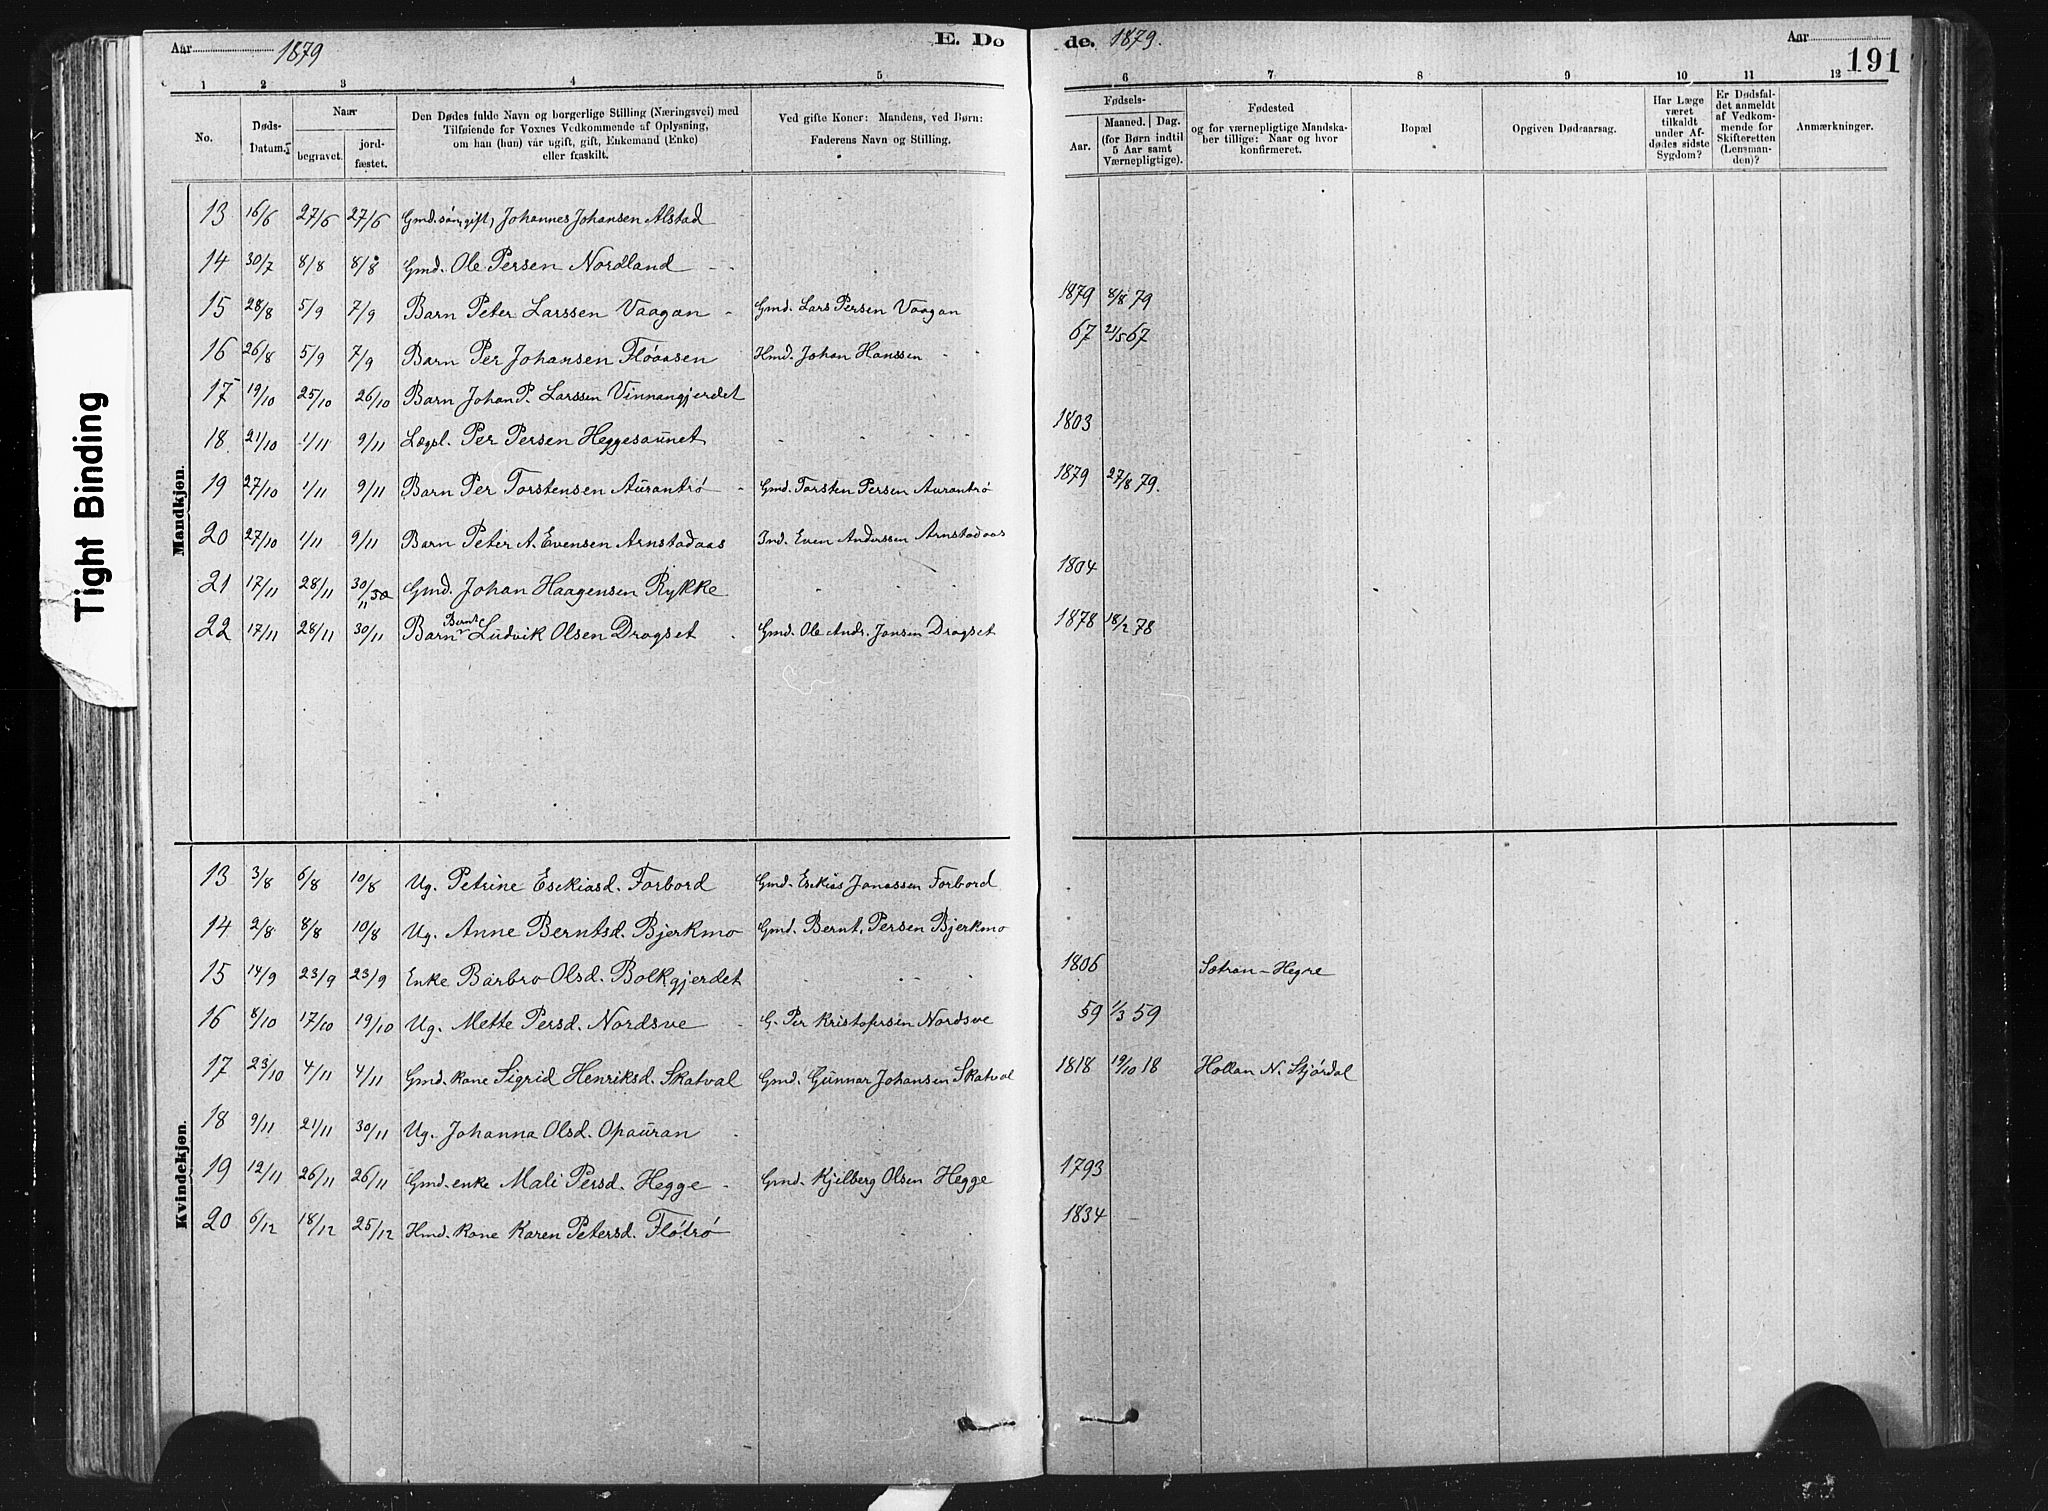 Aar 1879 E. Dø de. 1879. Aar 191
1 2 3 4 5 6 7 8 9 10 11 12
No. Døds-Datum. Naar begravet. jordfæstet. Den Dødes fulde Navn og borgerlige Stilling (Næringsvei) med Tilføiende for Voxnes Vedkommende af Oplysning, om han (hun) var ugift, gift, Enkemand (Enke) eller fraskilt. Ved gifte Koner: Mandens, ved Børn: Faderens Navn og Stilling. Fødsels- Aar. Maaned. Dag. (for Børn indtil 5 Aar samt Værnepligtige). Fødested og for værnepligtige Mandskaber tillige: Naar og hvor konfirmeret. Bopæl Opgiven Dødsaarsag. Har Læge været tilkaldt under Afdødes sidste Sygdom? Er Dødsfaldet anmeldt af Vedkommende for Skifteretten (Lensmanden)? Anmærkninger.
Tight Binding
Mandkjøn.
13 16/6 27/6 27/6 Gmd.søn, gift, Johannes Johansen Alstad
14 30/7 8/8 8/8 Gmd. Ole Persen Nordland
15 28/8 5/9 7/9 Barn Peter Larssen Vaagan Gmd. Lars Persen Vaagan 1879 8/8 79
16 26/8 5/9 7/9 Barn Per Johansen Fløaasen Hmd. Johan Hanssen 67 21/5 67
17 19/10 25/10 26/10 Barn Johan P. Larssen Vinnangjerdet
18 21/10 1/11 9/11 Lægsl. Per Persen Heggesaunet 1803
19 27/10 1/11 9/11 Barn Per Torstensen Aurantrø Gmd. Torsten Persen Aurantrø 1879 27/8 79.
20 27/10 1/11 9/11 Barn Peter A. Evensen Arnstadaas Ind. Even Anderssen Arnstadaas
21 17/11 28/11 30/11 30 Gmd. Johan Haagensen Rykke 1804
22 17/11 28/11 30/11 Barn Bernt Ludvik Olsen Dragset Gmd. Ole Andr. Jonsen Dragset 1878 18/2 78
Kvindekjøn.
13 3/8 6/8 10/8 Ug. Petrine Esekiasd. Forbord Gmd. Esekias Jonassen Forbord
14 2/8 8/8 10/8 Ug. Anne Berntsd. Bjerkmo Gmd. Bernt. Persen Bjerkmo
15 14/9 23/9 23/9 Enke Barbro Olsd. Bolkgjerdet 1806 Sætran - Hegre
16 8/10 17/10 19/10 Ug. Mette Persd. Nordsve G. Per Kristofersen Nordsve 59 1/3 59
17 23/10 4/11 4/11 Gmd. kone Sigrid Henriksd. Skatval Gmd. Gunnar Johansen Skatval 1818 19/10 18 Hollan N. Stjørdal
18 9/11 21/11 30/11 Ug. Johanna Olsd. Opauran
19 12/11 26/11 26/11 Gmd. enke Mali Persd. Hegge Gmd. Kjelberg Olsen Hegge 1793
20 6/12 18/12 25/12 Hmd. kone Karen Petersd. Fløtrø 1834